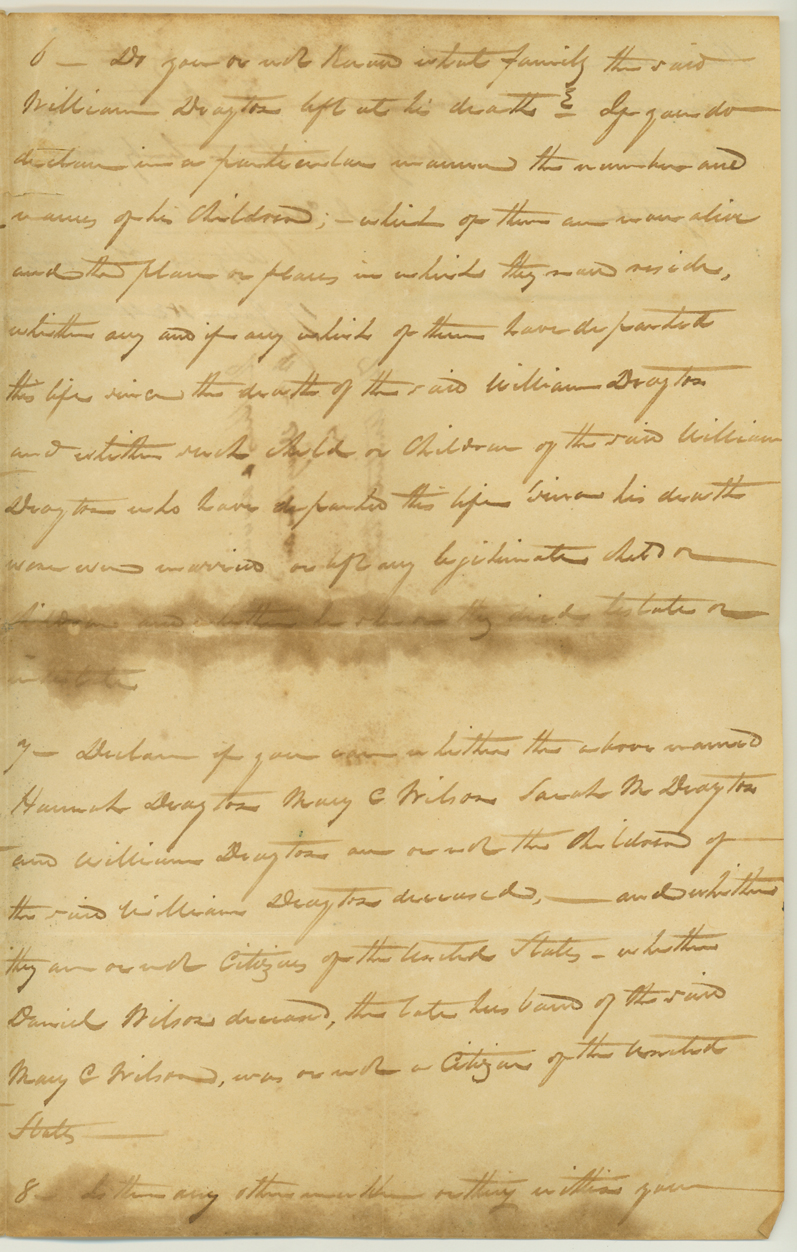 6 — Do you or not know what family the said
William Drayton left at his death? If you do
declare in a particular manner the number and
names of his Children; – which of them are now alive
and the place or places in which they now reside,
whether any and if any which of them have departed
this life since the death of the said William Drayton
and whether such child or Children of the said William
Drayton who have departed this life since his death
were ever married or left any legitimate child or
children and whether he she or they died testate or
intestate
7 — Declare if you can whether the above named
Hannah Drayton Mary C Wilson Sarah M Drayton
and William Drayton are or not the Children of
the said William Drayton deceased, — and whether
they are or not Citizens of the United States – whether
Daniel Wilson deceased, the late husband of the said
Mary C Wilson, was or not a Citizen of the United
States
8 — Is there any other matter or thing within your